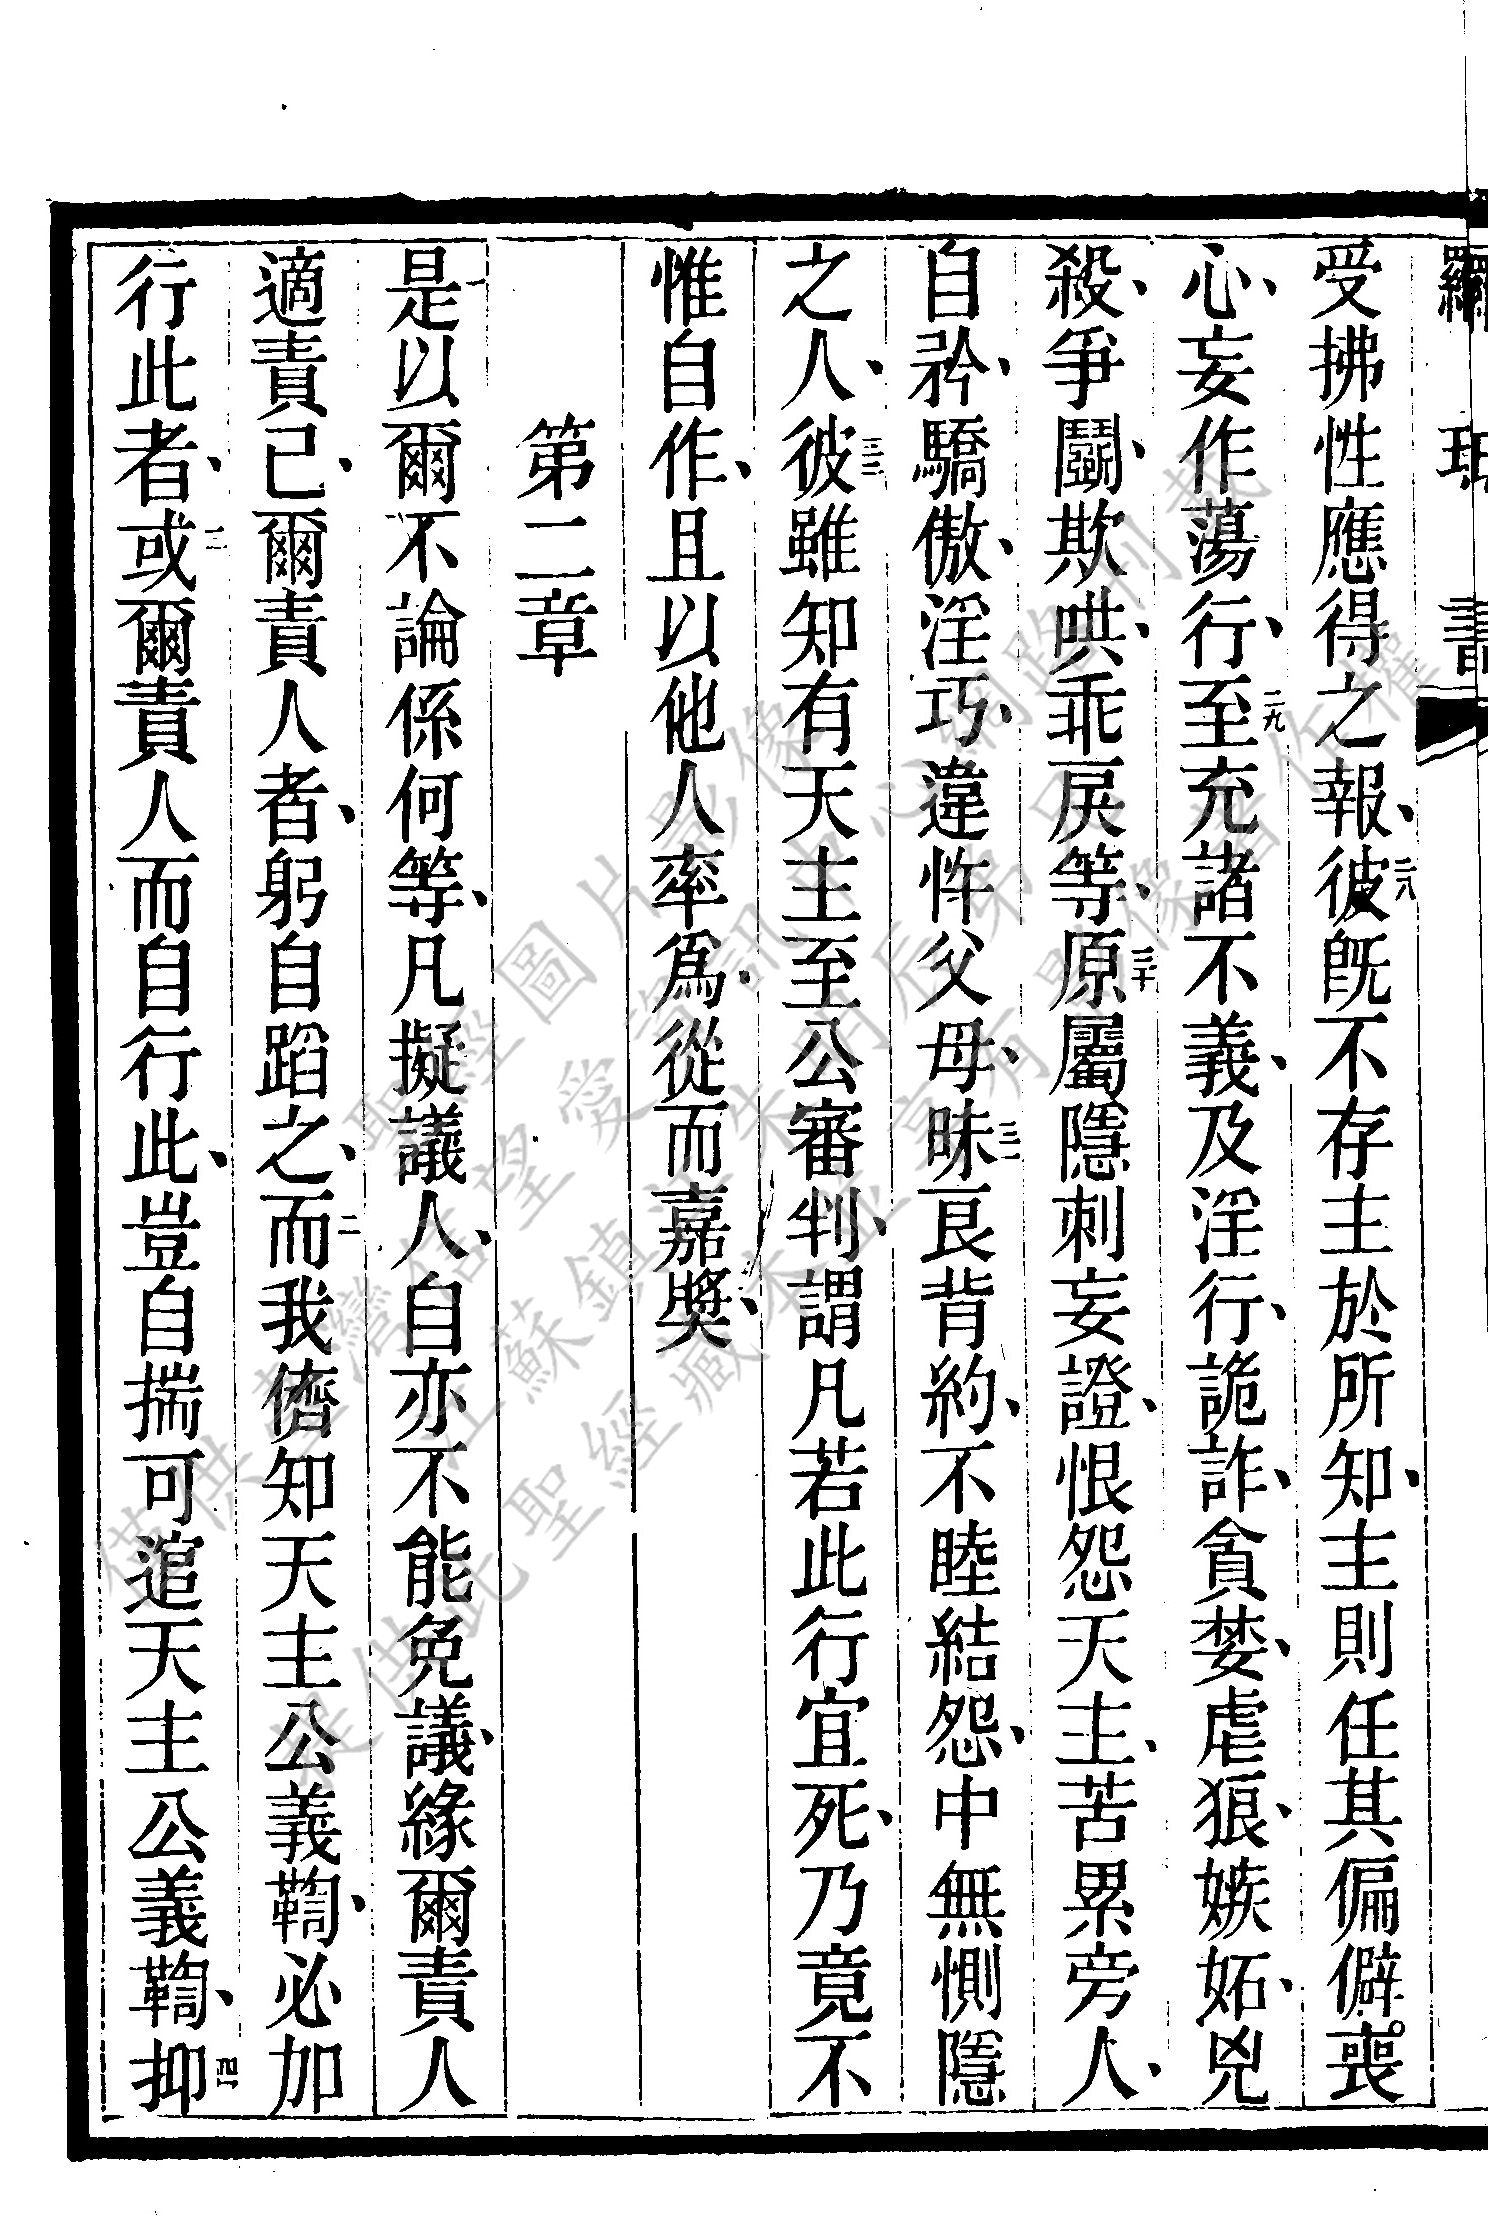 羅 玻 書
受拂性應得之報、二八彼既不存主於所知、主則任其偏僻。喪
心、妄作蕩行、二九至充諸不義、及淫行、詭詐、貪婪、虐狠、嫉妬、兇
殺、爭鬬、欺哄、乖戾等、三十原屬隱刺妄證、恨怨天主、苦累旁人、
自矜、驕傲、淫巧、違忤父母、三一昧良背約、不睦結怨、中無惻隱
之人、三二彼雖知有天主至公審判、謂凡若此行宜死、乃竟不
惟自作、且以他人率爲、從而嘉獎、
第二章
一是以爾不論係何等、凡擬議人、自亦不能免議、緣爾責人
適責己、爾責人者、躬自蹈之、二而我儕知天主公義鞫、必加
行此者、三或爾責人而自行此、豈自揣可逭天主公義鞫、四抑
僅供臺灣信望愛資訊中心網路刊載
聖經圖片影像
江蘇鎮江朱明辰弟兄
提供此聖經藏本並享有影像著作權